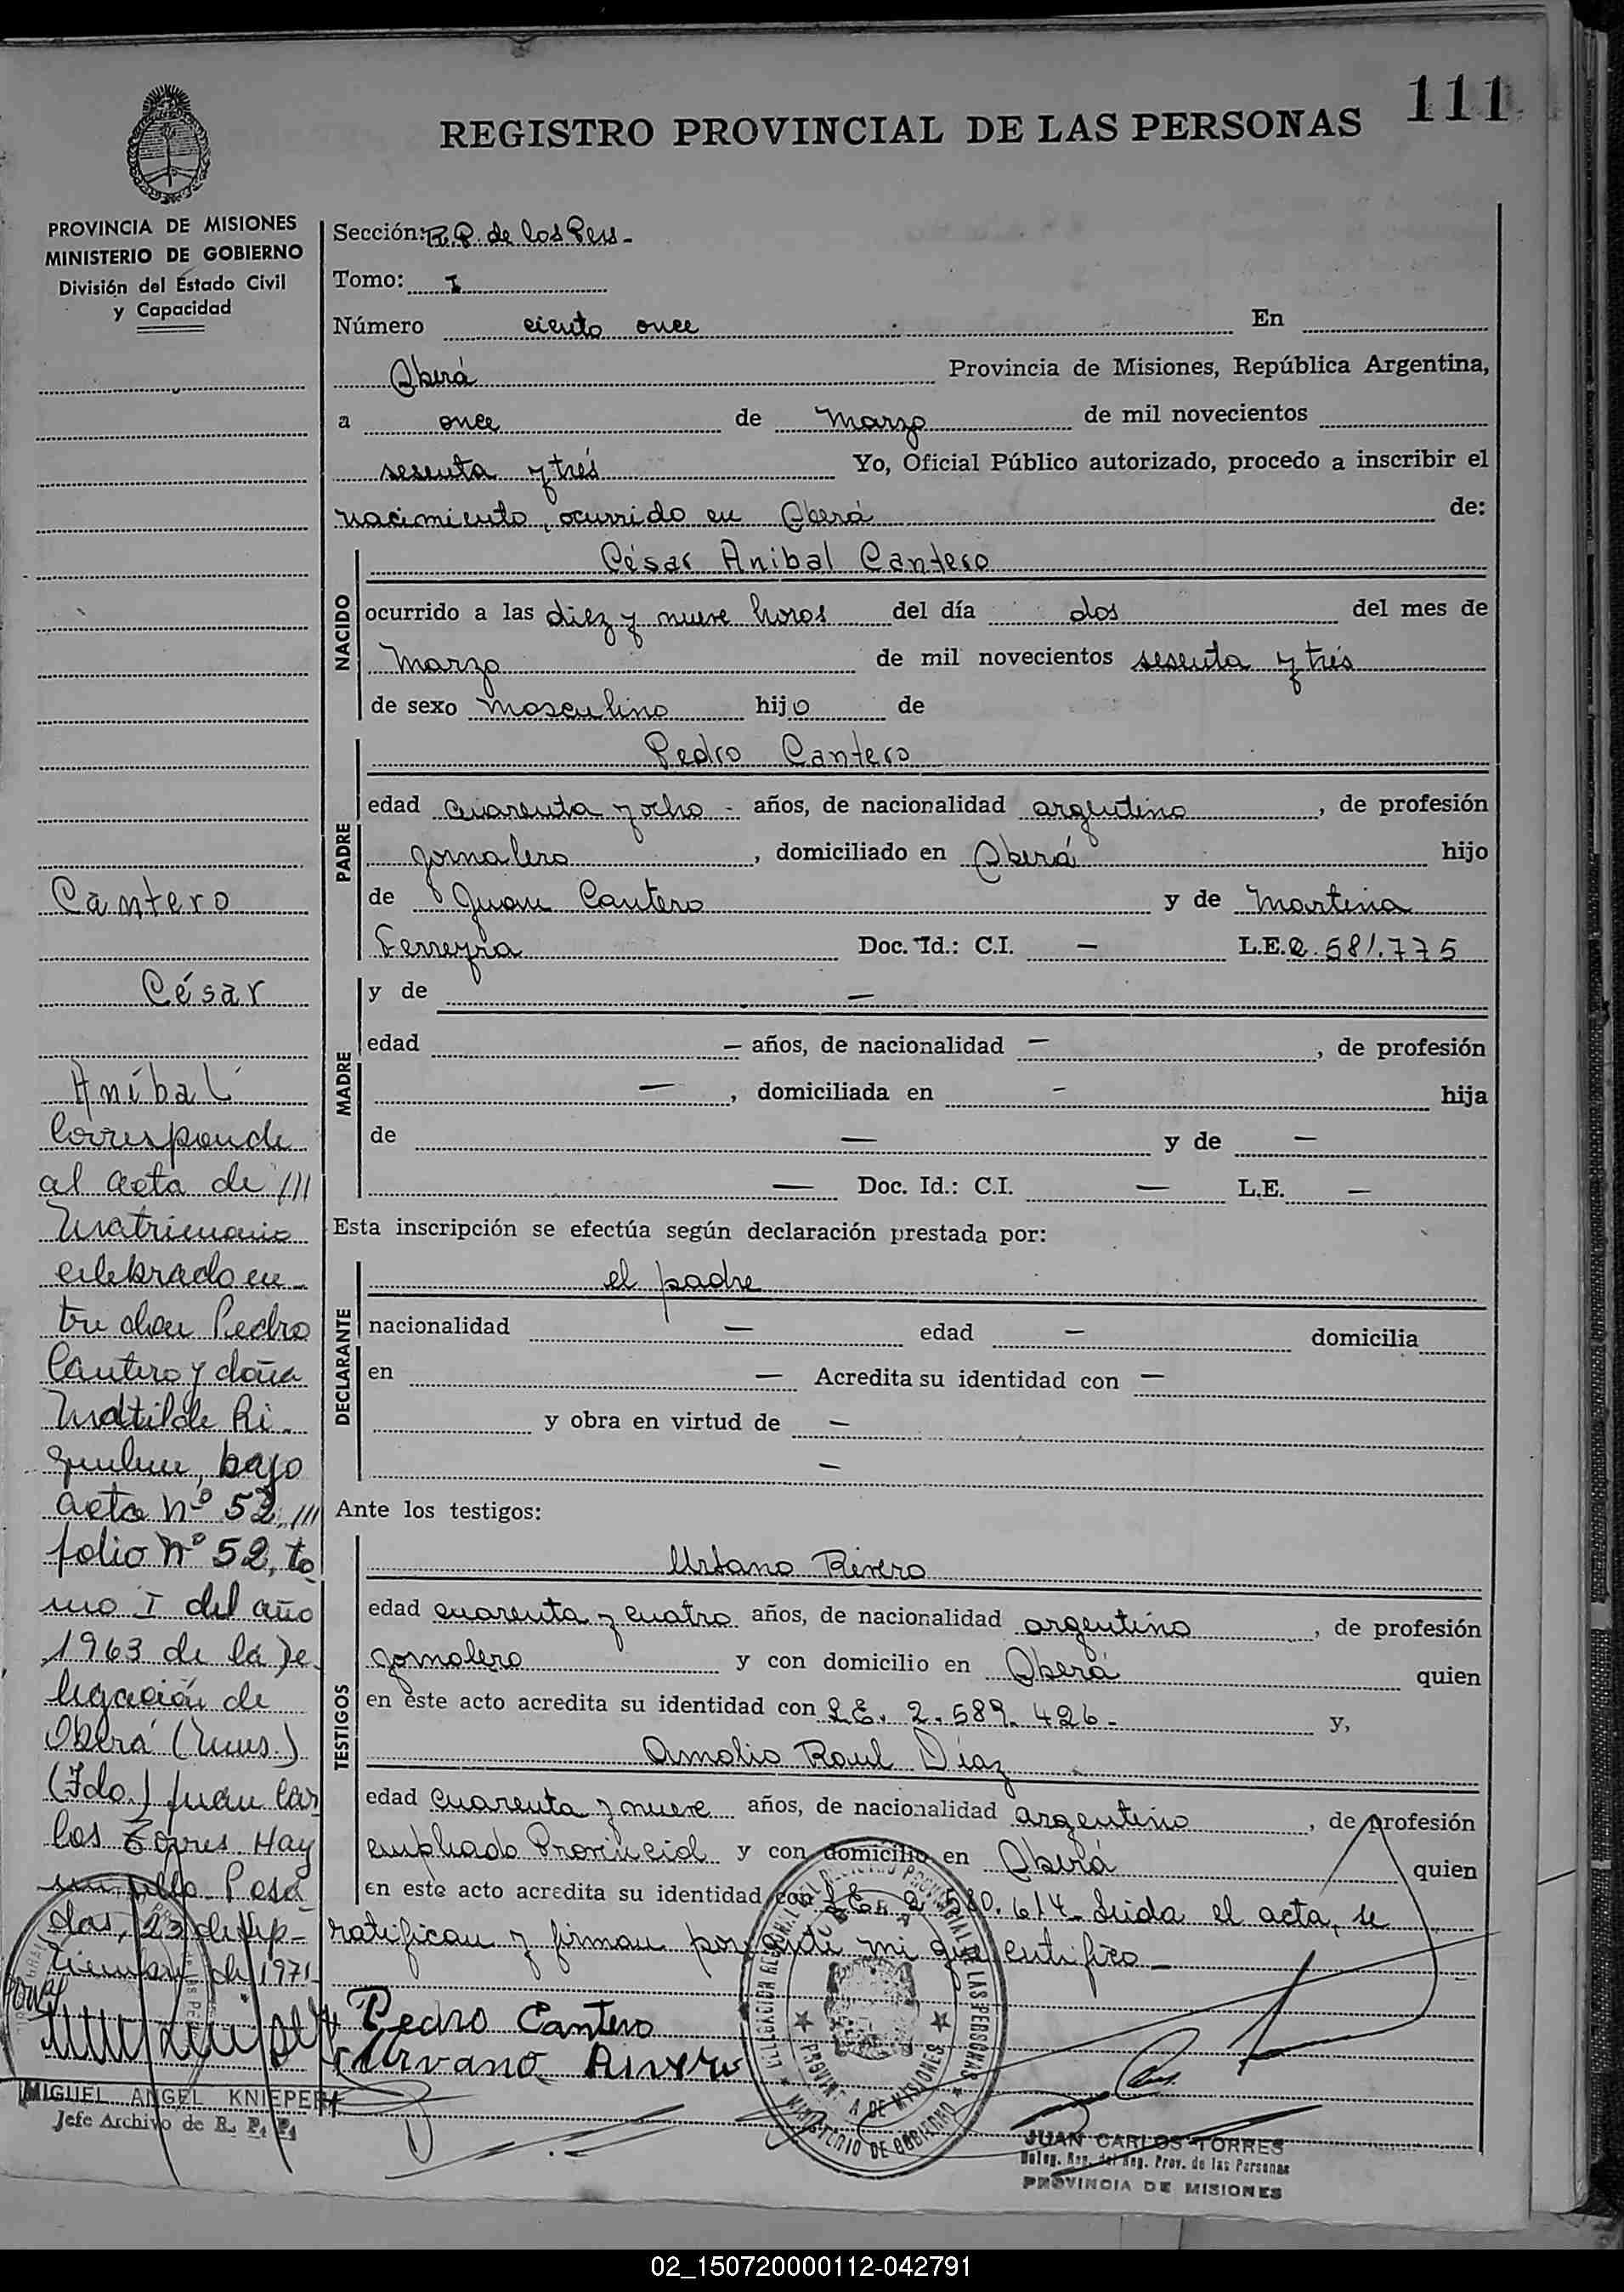 111
REGISTRO PROVINCIAL DE LAS PERSONAS
PROVINCIA DE MISIONES
MINISTERIO DE GOBIERNO
División del Estado Civil
y Capacidad
Sección: R.P. de las Pers -
Tomo: I
Número ciento once En
Oberá Provincia de Misiones, República Argentina,
a once de Marzo de mil novecientos
sesenta y trés Yo, Oficial Público autorizado, procedo a inscribir el
nacimiento, ocurrido en Oberá de:
NACIDO
César Anibal Cantero
ocurrido a las diez y nueve horas del día dos del mes de
Marzo de mil novecientos sesenta y trés
de sexo Masculino hijo de
PADRE
Pedro Cantero
edad cuarenta y ocho - años, de nacionalidad argentino, de profesión
jornalero, domiciliado en Oberá hijo
de Juan Cantero y de Martina
Ferreyra Doc. Id.: C.I. — L.E. 2.581.775
MADRE
y de —
edad — años, de nacionalidad —, de profesión
—, domiciliada en — hija
de — y de —
— Doc. Id.: C.I. — L.E. —
Esta inscripción se efectúa según declaración prestada por:
DECLARANTE
el padre
nacionalidad — edad — domicilia
en — Acredita su identidad con —
y obra en virtud de —
—
Ante los testigos:
TESTIGOS
Urbano Rivero
edad cuarenta y cuatro años, de nacionalidad argentino, de profesión
jornalero y con domicilio en Oberá quien
en este acto acredita su identidad con L.E. 2.589.426 - y,
Amalio Raul Díaz
edad cuarenta y nueve años, de nacionalidad argentino, de profesión
empleado Provincial y con domicilio en Oberá quien
en este acto acredita su identidad con L.E. 2.580.614 - Leida el acta, se
ratifican y firman por ante mi que certifico -
Pedro Cantero
Urvano Rivero
Cantero
César
Aníbal
Corresponde
al acta de ///
Matrimonio
celebrado en-
tre don Pedro
Cantero y doña
Matilde Ri-
bajo
acta Nº 52, ///
folio Nº 52, to
mo I del año
1963 de la De-
legación de
Oberá (Mnes.)
(Fdo.) Juan Car
los Torres. Hay
un sello. Posa
das, 23 de Sep-
tiembre de 1971
MIGUEL ANGEL KNIEPERT
Jefe Archivo de R. P. P.
REGISTRO PROVINCIAL DE LAS PERSONAS
OBERA
PROVINCIA DE MISIONES
MINISTERIO DE GOBIERNO
JUAN CARLOS TORRES
Deleg. Reg. del Reg. Prov. de las Personas
PROVINCIA DE MISIONES
02_150720000112-042791